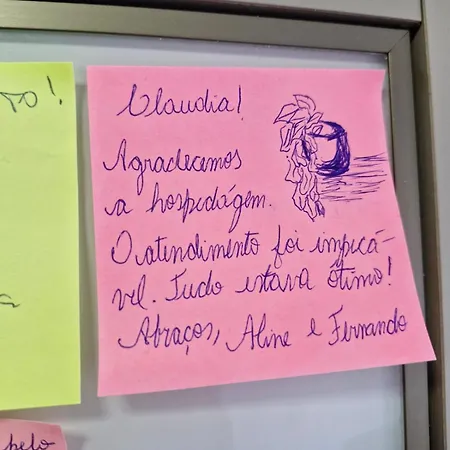 Claudia!
Agradecemos
a hospedágem.
O atendimento foi impicá-
vel. Tudo estava ótimo!
Abraços, Aline e Fernando
pelo